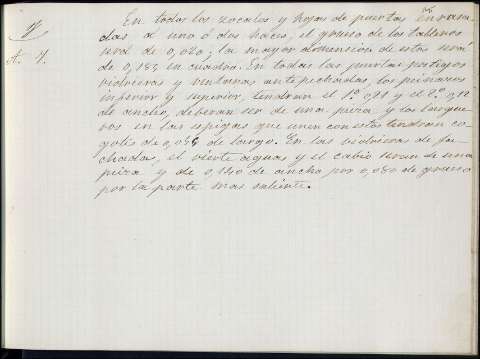 En todos los zocalos y hojas de puertas enrasa-
das á uno ó dos haces, el grueso de los tableros
será de 0,020; la mayor dimension de estos será
de 0,185 en cuadro. En todas las puertas postigos
vidrieras y ventanas antepechadas, los peinazos
inferior y superior, tendran el 1º 0,21 y el 2º 0,12
de ancho, deberan ser de una pieza y los largue-
ros en las espigas que unen con estos tendran co-
gotes de 0,035 de largo. En las vidrieras de fa-
chadas, el vierte aguas y el cabio seran de una
pieza y de 0,140 de ancho por 0,080 de grueso
por la parte mas saliente.